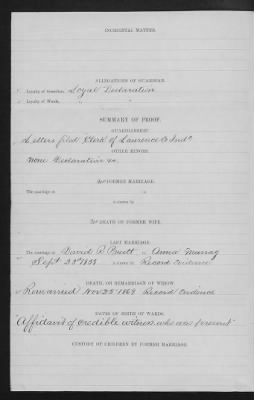 INCIDENTAL MATTER.
ALLEGATIONS OF GUARDIAN.
Loyalty of Guardian, Loyal Declaration
Loyalty of Wards, "
SUMMARY OF PROOF.
GUARDIANSHIP.
Letters filed Clerk of Lawrence Co Indª
OTHER MINORS.
None Declaration &c.
FORMER MARRIAGE.
The marriage of to
is shown by
DEATH OR FORMER WIFE.
LAST MARRIAGE.
The marriage of David R Pruett to Anna Murray
Sept 23ᵈ 1858 is shown by Record Evidence
DEATH, OR REMARRIAGE OF WIDOW.
Remarried Nov 25 1869 Record Evidence
DATES OF BIRTH OF WARDS.
Affidavit of credible witness who was present
CUSTODY OF CHILDREN BY FORMER MARRIAGE.